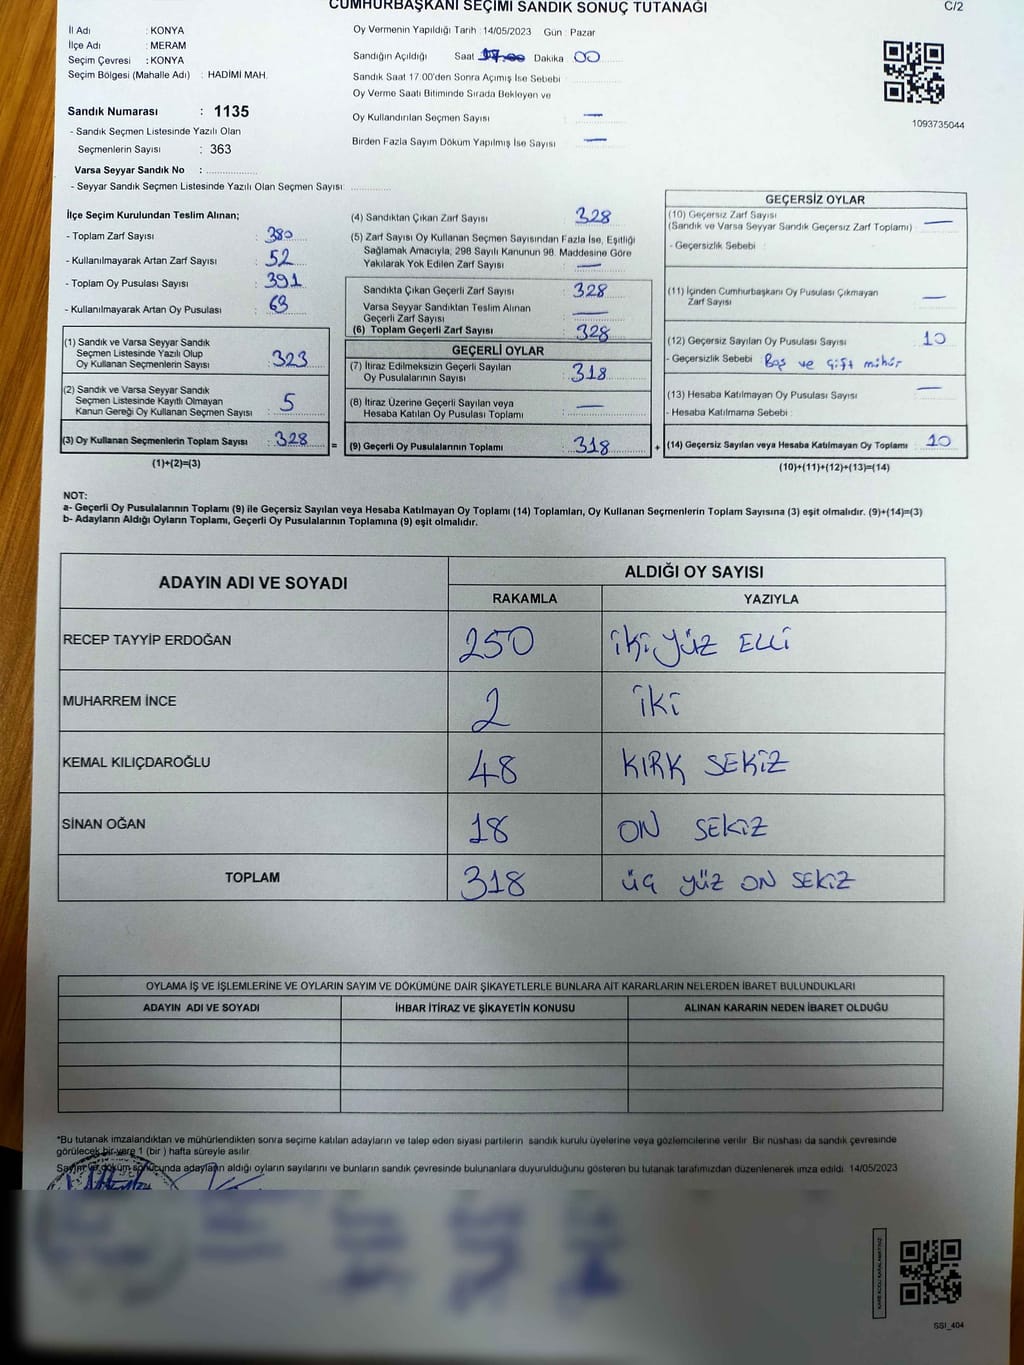 CUMHURBAŞKANI SEÇİMİ SANDIK SONUÇ TUTANAĞI
C/2
İl Adı : KONYA
İlçe Adı : MERAM
Seçim Çevresi : KONYA
Seçim Bölgesi (Mahalle Adı) : HADİMİ MAH.
Sandık Numarası : 1135
- Sandık Seçmen Listesinde Yazılı Olan
Seçmenlerin Sayısı : 363
Varsa Seyyar Sandık No :
- Seyyar Sandık Seçmen Listesinde Yazılı Olan Seçmen Sayısı:
Oy Vermenin Yapıldığı Tarih : 14/05/2023 Gün : Pazar
Sandığın Açıldığı Saat 17.00 Dakika 00
Sandık Saat 17:00'den Sonra Açımış İse Sebebi
Oy Verme Saati Bitiminde Sırada Bekleyen ve
Oy Kullandırılan Seçmen Sayısı —
Birden Fazla Sayım Döküm Yapılmış İse Sayısı —
1093735044
İlçe Seçim Kurulundan Teslim Alınan;
- Toplam Zarf Sayısı : 380
- Kullanılmayarak Artan Zarf Sayısı : 52
- Toplam Oy Pusulası Sayısı : 391
- Kullanılmayarak Artan Oy Pusulası : 63
(1) Sandık ve Varsa Seyyar Sandık
Seçmen Listesinde Yazılı Olup
Oy Kullanan Seçmenlerin Sayısı : 323
(2) Sandık ve Varsa Seyyar Sandık
Seçmen Listesinde Kayıtlı Olmayan
Kanun Gereği Oy Kullanan Seçmen Sayısı : 5
(3) Oy Kullanan Seçmenlerin Toplam Sayısı : 328 =
(1)+(2)=(3)
(4) Sandıktan Çıkan Zarf Sayısı : 328
(5) Zarf Sayısı Oy Kullanan Seçmen Sayısından Fazla İse, Eşitliği
Sağlamak Amacıyla, 298 Sayılı Kanunun 98. Maddesine Göre
Yakılarak Yok Edilen Zarf Sayısı : —
Sandıkta Çıkan Geçerli Zarf Sayısı : 328
Varsa Seyyar Sandıktan Teslim Alınan
Geçerli Zarf Sayısı : —
(6) Toplam Geçerli Zarf Sayısı : 328
GEÇERLİ OYLAR
(7) İtiraz Edilmeksizin Geçerli Sayılan
Oy Pusulalarının Sayısı : 318
(8) İtiraz Üzerine Geçerli Sayılan veya
Hesaba Katılan Oy Pusulası Toplamı : —
(9) Geçerli Oy Pusulalarının Toplamı : 318 +
GEÇERSİZ OYLAR
(10) Geçersiz Zarf Sayısı
(Sandık ve Varsa Seyyar Sandık Geçersiz Zarf Toplamı) : —
- Geçersizlik Sebebi :
(11) İçinden Cumhurbaşkanı Oy Pusulası Çıkmayan
Zarf Sayısı : —
(12) Geçersiz Sayılan Oy Pusulası Sayısı : 10
- Geçersizlik Sebebi : Boş ve Çift mühür
(13) Hesaba Katılmayan Oy Pusulası Sayısı : —
- Hesaba Katılmama Sebebi :
(14) Geçersiz Sayılan veya Hesaba Katılmayan Oy Toplamı : 10
(10)+(11)+(12)+(13)=(14)
NOT:
a- Geçerli Oy Pusulalarının Toplamı (9) ile Geçersiz Sayılan veya Hesaba Katılmayan Oy Toplamı (14) Toplamları, Oy Kullanan Seçmenlerin Toplam Sayısına (3) eşit olmalıdır. (9)+(14)=(3)
b- Adayların Aldığı Oyların Toplamı, Geçerli Oy Pusulalarının Toplamına (9) eşit olmalıdır.
ADAYIN ADI VE SOYADI
ALDIĞI OY SAYISI
RAKAMLA YAZIYLA
RECEP TAYYİP ERDOĞAN 250 iki yüz ELLİ
MUHARREM İNCE 2 iki
KEMAL KILIÇDAROĞLU 48 KIRK SEKİZ
SİNAN OĞAN 18 ON SEKİZ
TOPLAM 318 üç yüz ON SEKİZ
OYLAMA İŞ VE İŞLEMLERİNE VE OYLARIN SAYIM VE DÖKÜMÜNE DAİR ŞİKAYETLERLE BUNLARA AİT KARARLARIN NELERDEN İBARET BULUNDUKLARI
ADAYIN ADI VE SOYADI İHBAR İTİRAZ VE ŞİKAYETİN KONUSU ALINAN KARARIN NEDEN İBARET OLDUĞU
*Bu tutanak imzalandıktan ve mühürlendikten sonra seçime katılan adayların ve talep eden siyasi partilerin sandık kurulu üyelerine veya gözlemcilerine verilir. Bir nüshası da sandık çevresinde
görülecek bir yere 1 (bir) hafta süreyle asılır.
Sayım ve döküm sonucunda adayların aldığı oyların sayılarını ve bunların sandık çevresinde bulunanlara duyurulduğunu gösteren bu tutanak tarafımızdan düzenlenerek imza edildi. 14/05/2023
KARE KODU KARALAMAYINIZ
SSI_404